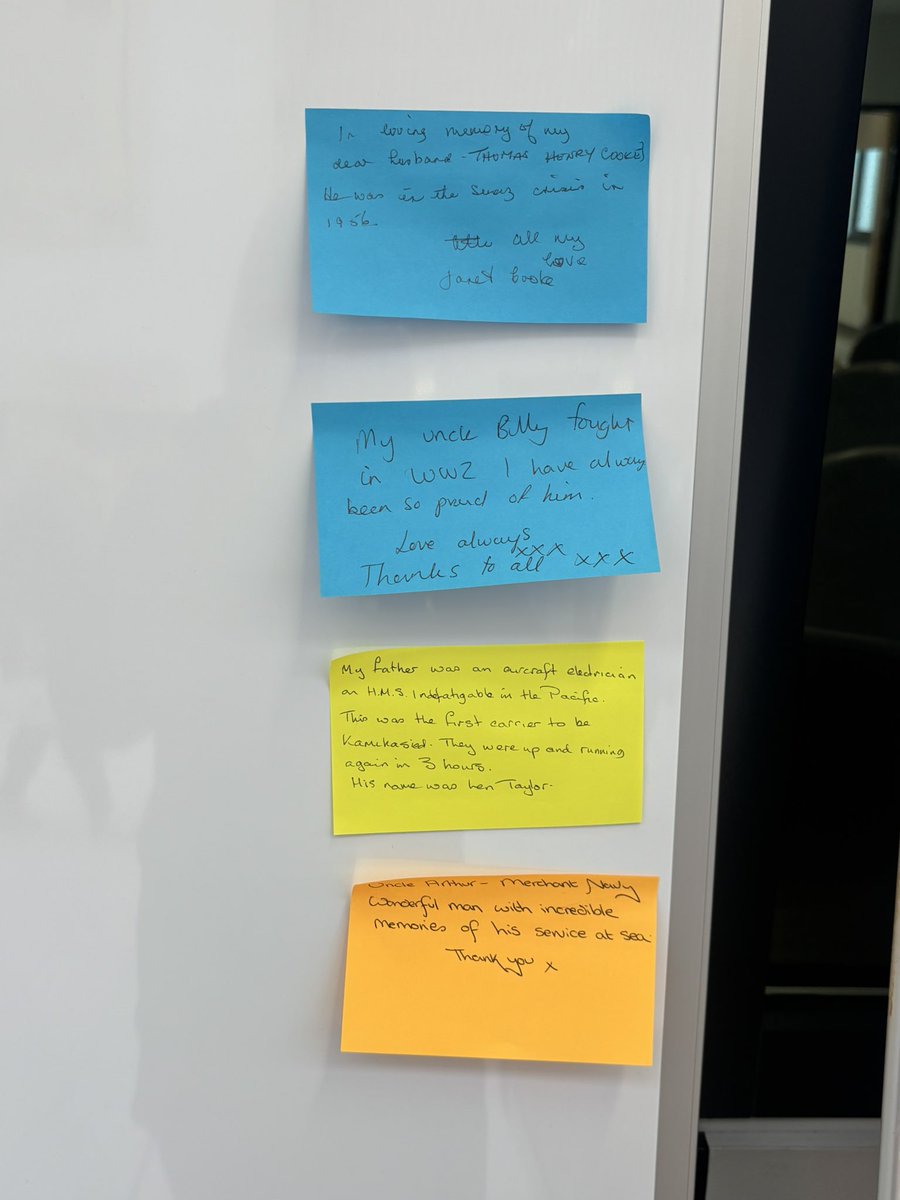 In loving memory of my
dear husband - THOMAS HENRY COOKE
He was in the Suez crisis in
1956
all my
love
Janet Cooke
My uncle Billy fought
in WW2 I have always
been so proud of him.
Love always
xxx
Thanks to all xxx
My father was an aircraft electrician
on H.M.S. Indefatigable in the Pacific.
This was the first carrier to be
Kamikasied. They were up and running
again in 3 hours.
His name was Len Taylor.
Uncle Arthur - Merchant Navy
Wonderful man with incredible
memories of his service at sea.
Thank you x